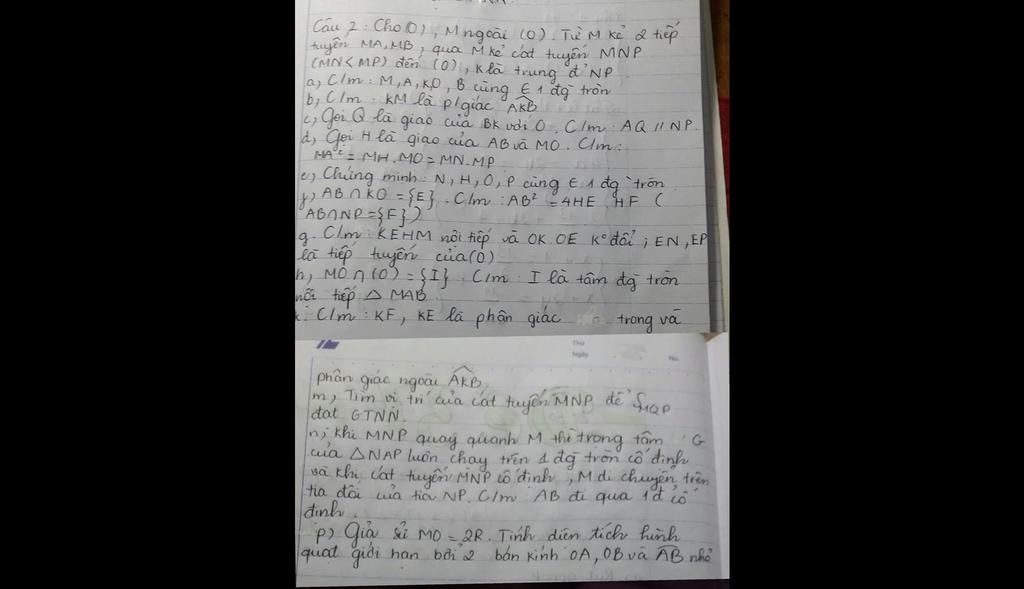 Câu 2: Cho (O), M ngoài (O). Từ M kẻ 2 tiếp
tuyến MA, MB, qua M kẻ cát tuyến MNP
(MN < MP) đến (O), K là trung đ' NP
a, C/m: M, A, K, O, B cùng ∈ 1 đg tròn
b, C/m: KM là p/giác AKB
c, Gọi Q là giao của BK với O. C/m: AQ // NP.
d, Gọi H là giao của AB và MO. C/m:
MA² = MH.MO = MN.MP
e, Chứng minh: N, H, O, P cùng ∈ 1 đg tròn
f, AB ∩ KO = {E}. C/m: AB² = 4HE.HF (
AB ∩ NP = {F})
g. C/m: KEHM nội tiếp và OK.OE K° đổi; EN, EP
là tiếp tuyến của (O)
h, MO ∩ (O) = {I}. C/m: I là tâm đg tròn
nội tiếp △ MAB
k. C/m: KF, KE là phân giác trong và
Thứ
Ngày No.
phân giác ngoài AKB
m, Tìm vị trí của cát tuyến MNP để S MQP
đạt GTNN.
n; Khi MNP quay quanh M thì trọng tâm G
của △NAP luôn chạy trên 1 đg tròn cố định
và khi cát tuyến MNP cố định, M di chuyển trên
tia đối của tia NP. C/m AB đi qua 1 đ' cố
định.
p) Giả sử MO = 2R. Tính diện tích hình
quạt giới hạn bởi 2 bán kính OA, OB và AB nhỏ